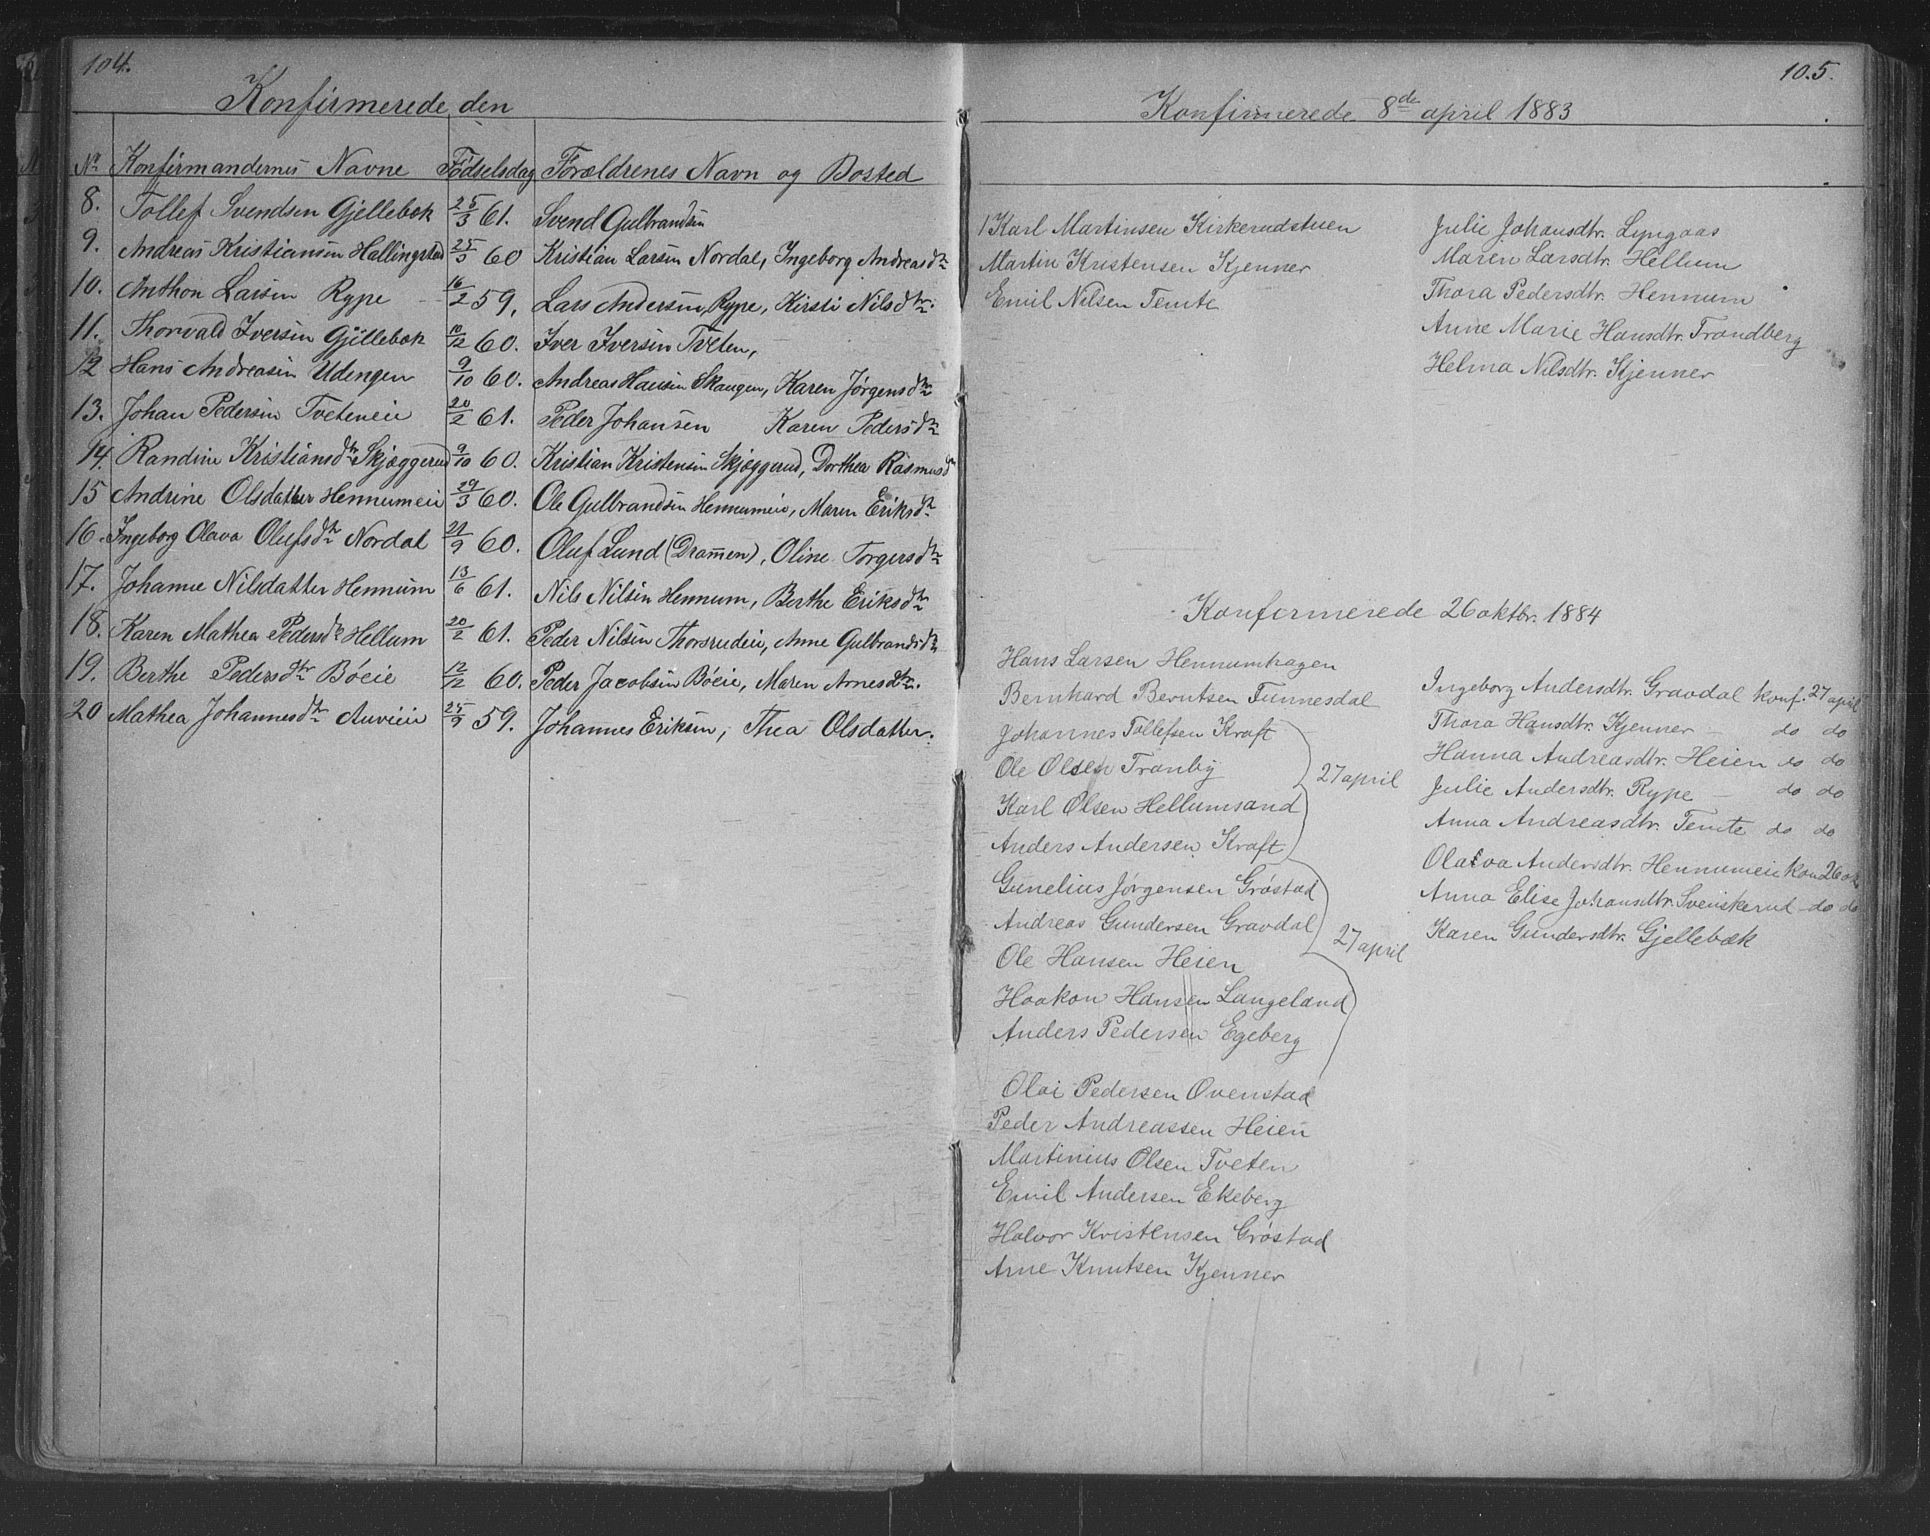 104.
Konfirmerede den
Nr. Konfirmandernes Navne Födselsdag Forældrenes Navn og Bosted
8. Tollef Svendsen Gjellebæk 25/3 61. Svend Gulbrandsen
9. Andreas Kristiansen Hallingstad 25/5 60 Kristian Larsen Nordal, Ingeborg Andreasdtr
10. Anthon Larsen Rype 16/2 59, Lars Andersen, Rype, Kirsti Nilsdtr.
11. Thorvald Iversen Gjellebæk 10/12 60. Iver Iversen Tveten,
12 Hans Andreasen Udengen 9/10 60. Andreas Hansen Skaugen, Karen Jørgensdtr
13. Johan Pedersen Tveteneie 20/2 61. Peder Johansen Karen Pedersdtr
14. Randine Kristiansdtr Skjæggerud 9/10 60. Kristian Kristensen Skjæggerud, Dorthea Rasmusdtr
15 Andrine Olsdatter Hennumeie 29/3 60. Ole Gulbrandsen Hennumeie, Maren Eriksdtr.
16. Ingeborg Olava Olufsdtr Nordal 21/9 60. Oluf Lund (Drammen), Oline Torgersdtr
17. Johanne Nilsdatter Hennum 13/6 61. Nils Nilsen Hennum, Berthe Eriksdtr
18. Karen Mathea Pedersdtr Hellum 20/2 61. Peder Nilsen Thorsrudeie, Anne Gulbrandsdtr
19. Berthe Pedersdtr Böeie 12/12 60. Peder Jacobsen Böeie, Maren Arnesdtr.
20 Mathea Johannesdtr Auvieie 25/9 59. Johannes Eriksen, Thea Olsdatter.
10.5.
Konfirmerede 8de april 1883
1 Karl Martinsen Kirkerudstuen
Martin Kristensen Kjenner
Emil Nilsen Temte
Julie Johansdtr. Lyngaas
Maren Larsdtr. Hellum
Thora Pedersdtr. Hennum
Anne Marie Hansdtr. Trandberg
Helma Nilsdtr. Kjenner
Konfirmerede 26 oktbr. 1884
Hans Larsen Hennumhagen
Bernhard Berntsen Tunnesdal
Johannes Tollefsen Kraft
Ole Olsen Tranby
27 april
Karl Olsen Hellumsand
Anders Andersen Kraft
Gunelius Jørgensen Gröstad
Andreas Gundersen Gravdal
27 april
Ole Hansen Heien
Haakon Hansen Langeland
Anders Pedersen Egeberg
Olai Pedersen Ovenstad
Peder Andreassen Heien
Martinius Olsen Tveten
Emil Andersen Ekeberg
Halvor Kristensen Gröstad
Arne Knutsen Kjenner
Ingeborg Andersdtr. Gravdal konf. 27 april
Thora Hansdtr. Kjenner - do do
Hanna Andreasdtr. Heien do do
Julie Andersdtr. Rype - do do
Anna Andreasdtr. Temte do do
Olava Andersdtr. Hennumeie kon 26 ok
Anna Elise Johansdtr. Svenskerud do do
Karen Gundersdtr. Gjellebæk